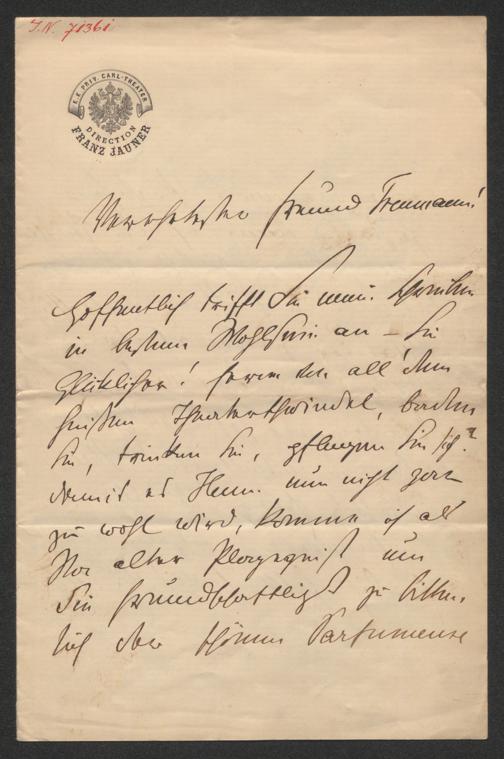 I.N. 71361
K.K. PRIV. CARL-THEATER
DIRECTION
FRANZ JAUNER
Verehrtester Freund Treumann!
Hoffentlich trifft Sie mein Schreiben
in bestem Wohlsein an – Sie
Glücklicher! ferne von all' dem
Theaterschwindel, baden
Sie, trinken Sie, pflegen Sie sich?
damit es Ihnen nun nicht gar
zu wohl wird, komme ich als
Ihr alter Plagegeist um
Sie freundschaftlichst zu bitten,
sich der schönen Parfumeuse